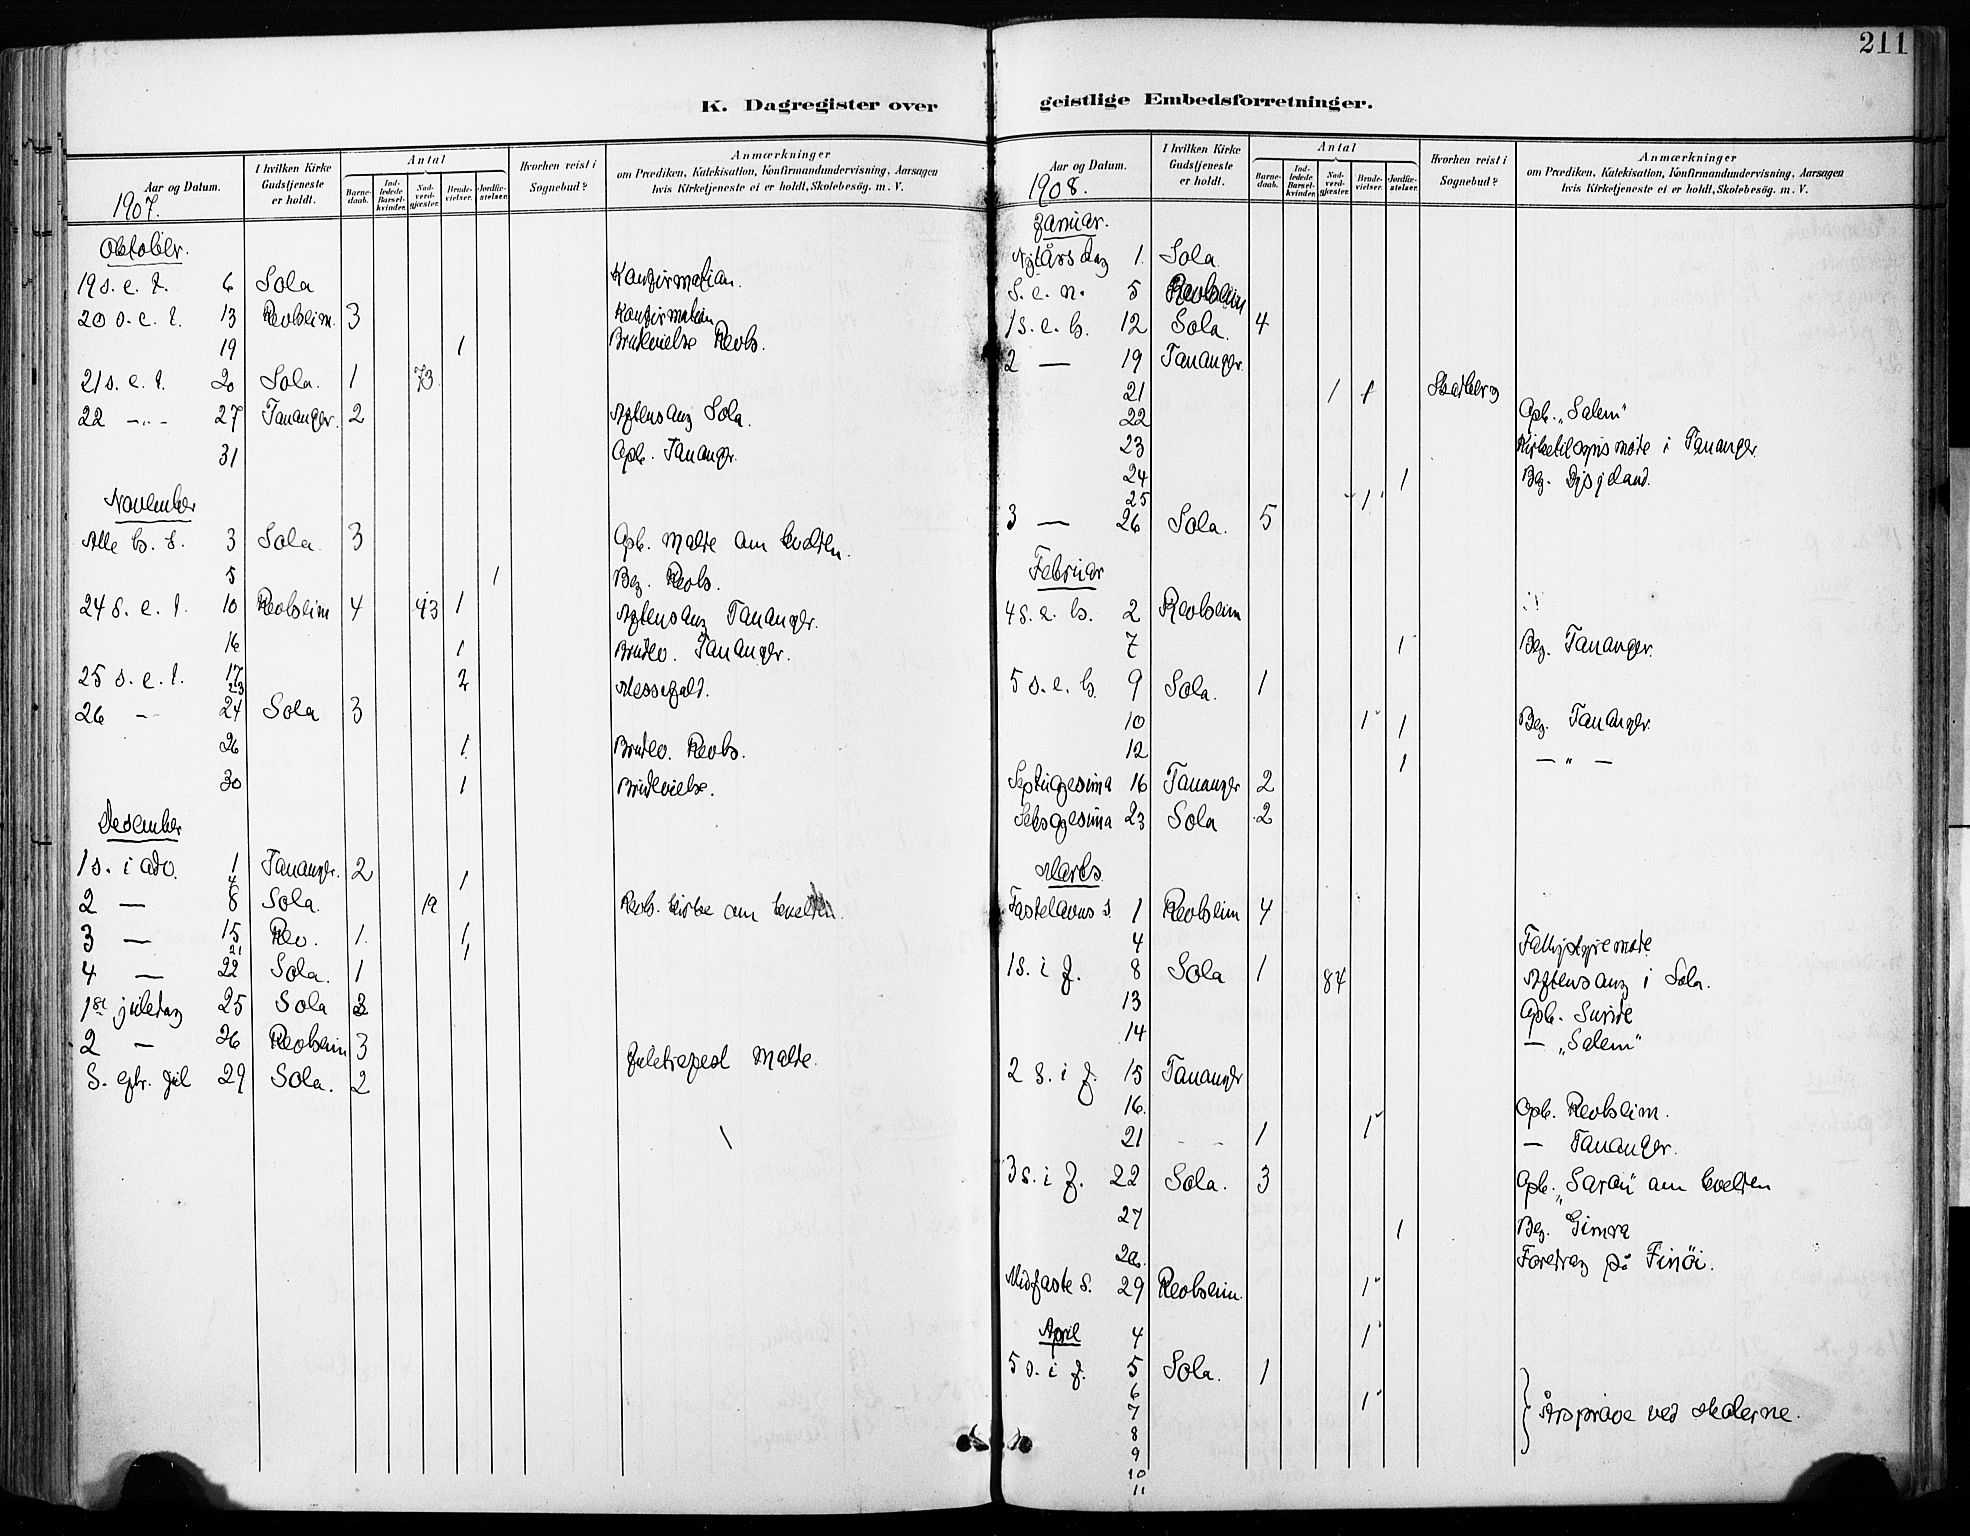 211
K. Dagregister over geistlige Embedsforretninger.
Aar og Datum. I hvilken Kirke Gudstjeneste er holdt. Antal Barnedaab. Indledede Barselkvinder. Nadverdgjæster. Brudevielser. Jordfæstelser. Hvorhen reist i Sognebud? Anmærkninger om Prædiken, Katekisation, Konfirmandundervisning, Aarsagen hvis Kirketjeneste ei er holdt, Skolebesög. m. V.
1907.
Oktober.
19 s. e. t. 6 Sola Konfirmation.
20 s. e. t. 13 Revheim. 3 Konfirmation
19 1 Brudevielse Revh.
21 s. e. t. 20 Sola. 1 73
22 -"- 27 Tananger. 2 Aftensang Sola.
31 Opb. Tananger.
November
Alle h. d. 3 Sola. 3 Opb. Malde om kvelden.
5 1 Beg. Revh.
24 s. e. t. 10 Revheim 4 43 1 Aftensang Tananger.
16 1 Brudev. Tananger.
25 s. e. t. 17 2 Messefald.
23
26 - 24 Sola 3
26 1 Brudev. Revh.
30 1 Brudevielse.
Desember
1 s. i adv. 1 Tananger. 2
4 1
2 — 8 Sola. 19 Revh. kirke om kvelden.
3 — 15 Rev. 1. 1
21 1
4 — 22 Sola. 1
1st juledag 25 Sola 3
2 — 26 Revheim 3
S. eftr. jul 29 Sola. 2 Juletrefest Malde.
Aar og Datum. I hvilken Kirke Gudstjeneste er holdt. Antal Barnedaab. Indledede Barselkvinder. Nadverdgjæster. Brudevielser. Jordfæstelser. Hvorhen reist i Sognebud? Anmærkninger om Prædiken, Katekisation, Konfirmandundervisning, Aarsagen hvis Kirketjeneste ei er holdt, Skolebesög. m. V.
1908.
Januar.
Nytårsdag 1. Sola.
S. e. n. 5 Revheim
1 s. e. h. 12 Sola. 4
2 — 19 Tananger.
21 1 1
22 Opb. „Salem"
23 Kirketilsynsmøte i Tananger
24 1 Beg.
25 1
3 — 26 Sola. 5
Februar
4 s. e. h. 2 Revheim
7 1 Beg. Tananger.
5 s. e. h. 9 Sola. 1
10 1 1 Beg. Tananger.
12 1 — " —
Septuagesima 16 Tananger 2
Seksagesima 23 Sola 2
Marts.
Fastelavns s. 1 Revheim 4
4
1 s. i f. 8 Sola 1 84 Aftensang i Sola.
13 Opb. Sunde
14 — „Salem"
2 s. i f. 15 Tananger
16. Opb. Revheim.
21 1 1 — Tananger.
3 s. i f. 22 Sola. 3 Opb. „Saron" om kvelden
27 1 Beg. Gimra
28. Foredrag på Finöi.
Midfaste s. 29 Revheim. 1
April 4 1
5 s. i f. 5 Sola. 1
6 1
7 Årsprøve ved skolerne.
8
9
10
11